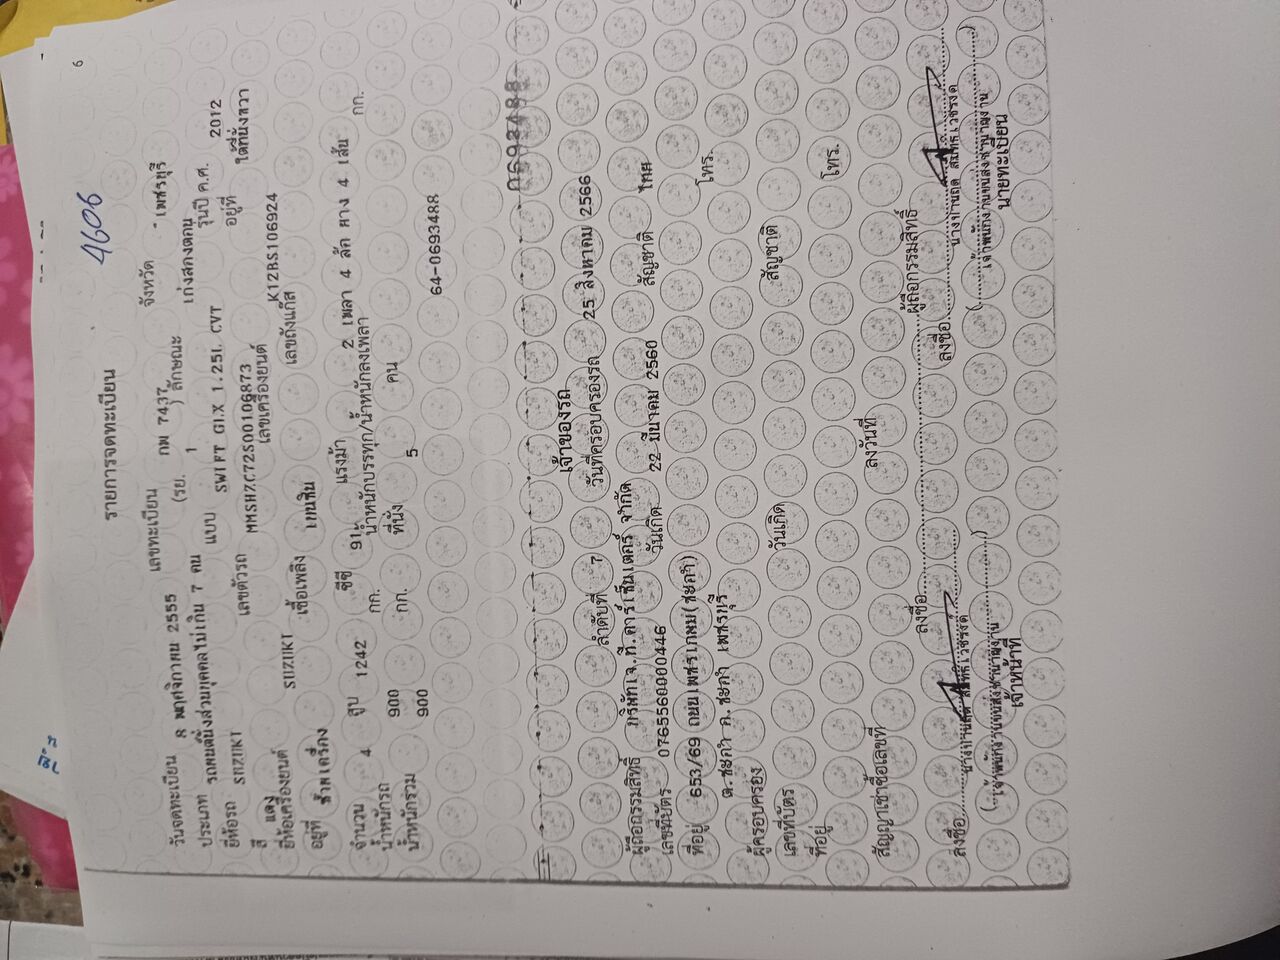 6
4606
รายการจดทะเบียน
วันจดทะเบียน 8 พฤศจิกายน 2555 เลขทะเบียน กพ 7437 จังหวัด เพชรบุรี
ประเภท รถยนต์นั่งส่วนบุคคลไม่เกิน 7 คน (รย. 1 ) ลักษณะ เก๋งสองตอน
ยี่ห้อรถ SUZUKI แบบ SWIFT GLX 1.25L CVT รุ่นปี ค.ศ. 2012
สี แดง เลขตัวรถ MMSHZC72S00106873 อยู่ที่ ใต้ที่นั่งขวา
ยี่ห้อเครื่องยนต์ SUZUKI เลขเครื่องยนต์ K12BS106924
อยู่ที่ ซ้ายเครื่อง เชื้อเพลิง เบนซิน เลขถังแก๊ส
จำนวน 4 สูบ 1242 ซีซี 91 แรงม้า 2 เพลา 4 ล้อ ยาง 4 เส้น
น้ำหนักรถ 900 กก. น้ำหนักบรรทุก/น้ำหนักลงเพลา กก.
น้ำหนักรวม 900 กก. ที่นั่ง 5 คน
64-0693488
0693488
เจ้าของรถ
ลำดับที่ 7 วันที่ครอบครองรถ 25 สิงหาคม 2566
ผู้ถือกรรมสิทธิ์ บริษัทเจ.ที.คาร์เซ็นเตอร์ จำกัด
เลขที่บัตร 0765560000446 วันเกิด 22 มีนาคม 2560 สัญชาติ ไทย
ที่อยู่ 653/69 ถนนเพชรเกษม(ชะอำ)
ต.ชะอำ อ.ชะอำ เพชรบุรี โทร.
ผู้ครอบครอง
เลขที่บัตร วันเกิด สัญชาติ
ที่อยู่ โทร.
สัญญาเช่าซื้อเลขที่ ลงวันที่
ลงชื่อ ผู้ถือกรรมสิทธิ์
ลงชื่อ ลงชื่อ
เจ้าพนักงานขนส่งชำนาญงาน เจ้าพนักงานขนส่งชำนาญงาน
เจ้าหน้าที่ นายทะเบียน